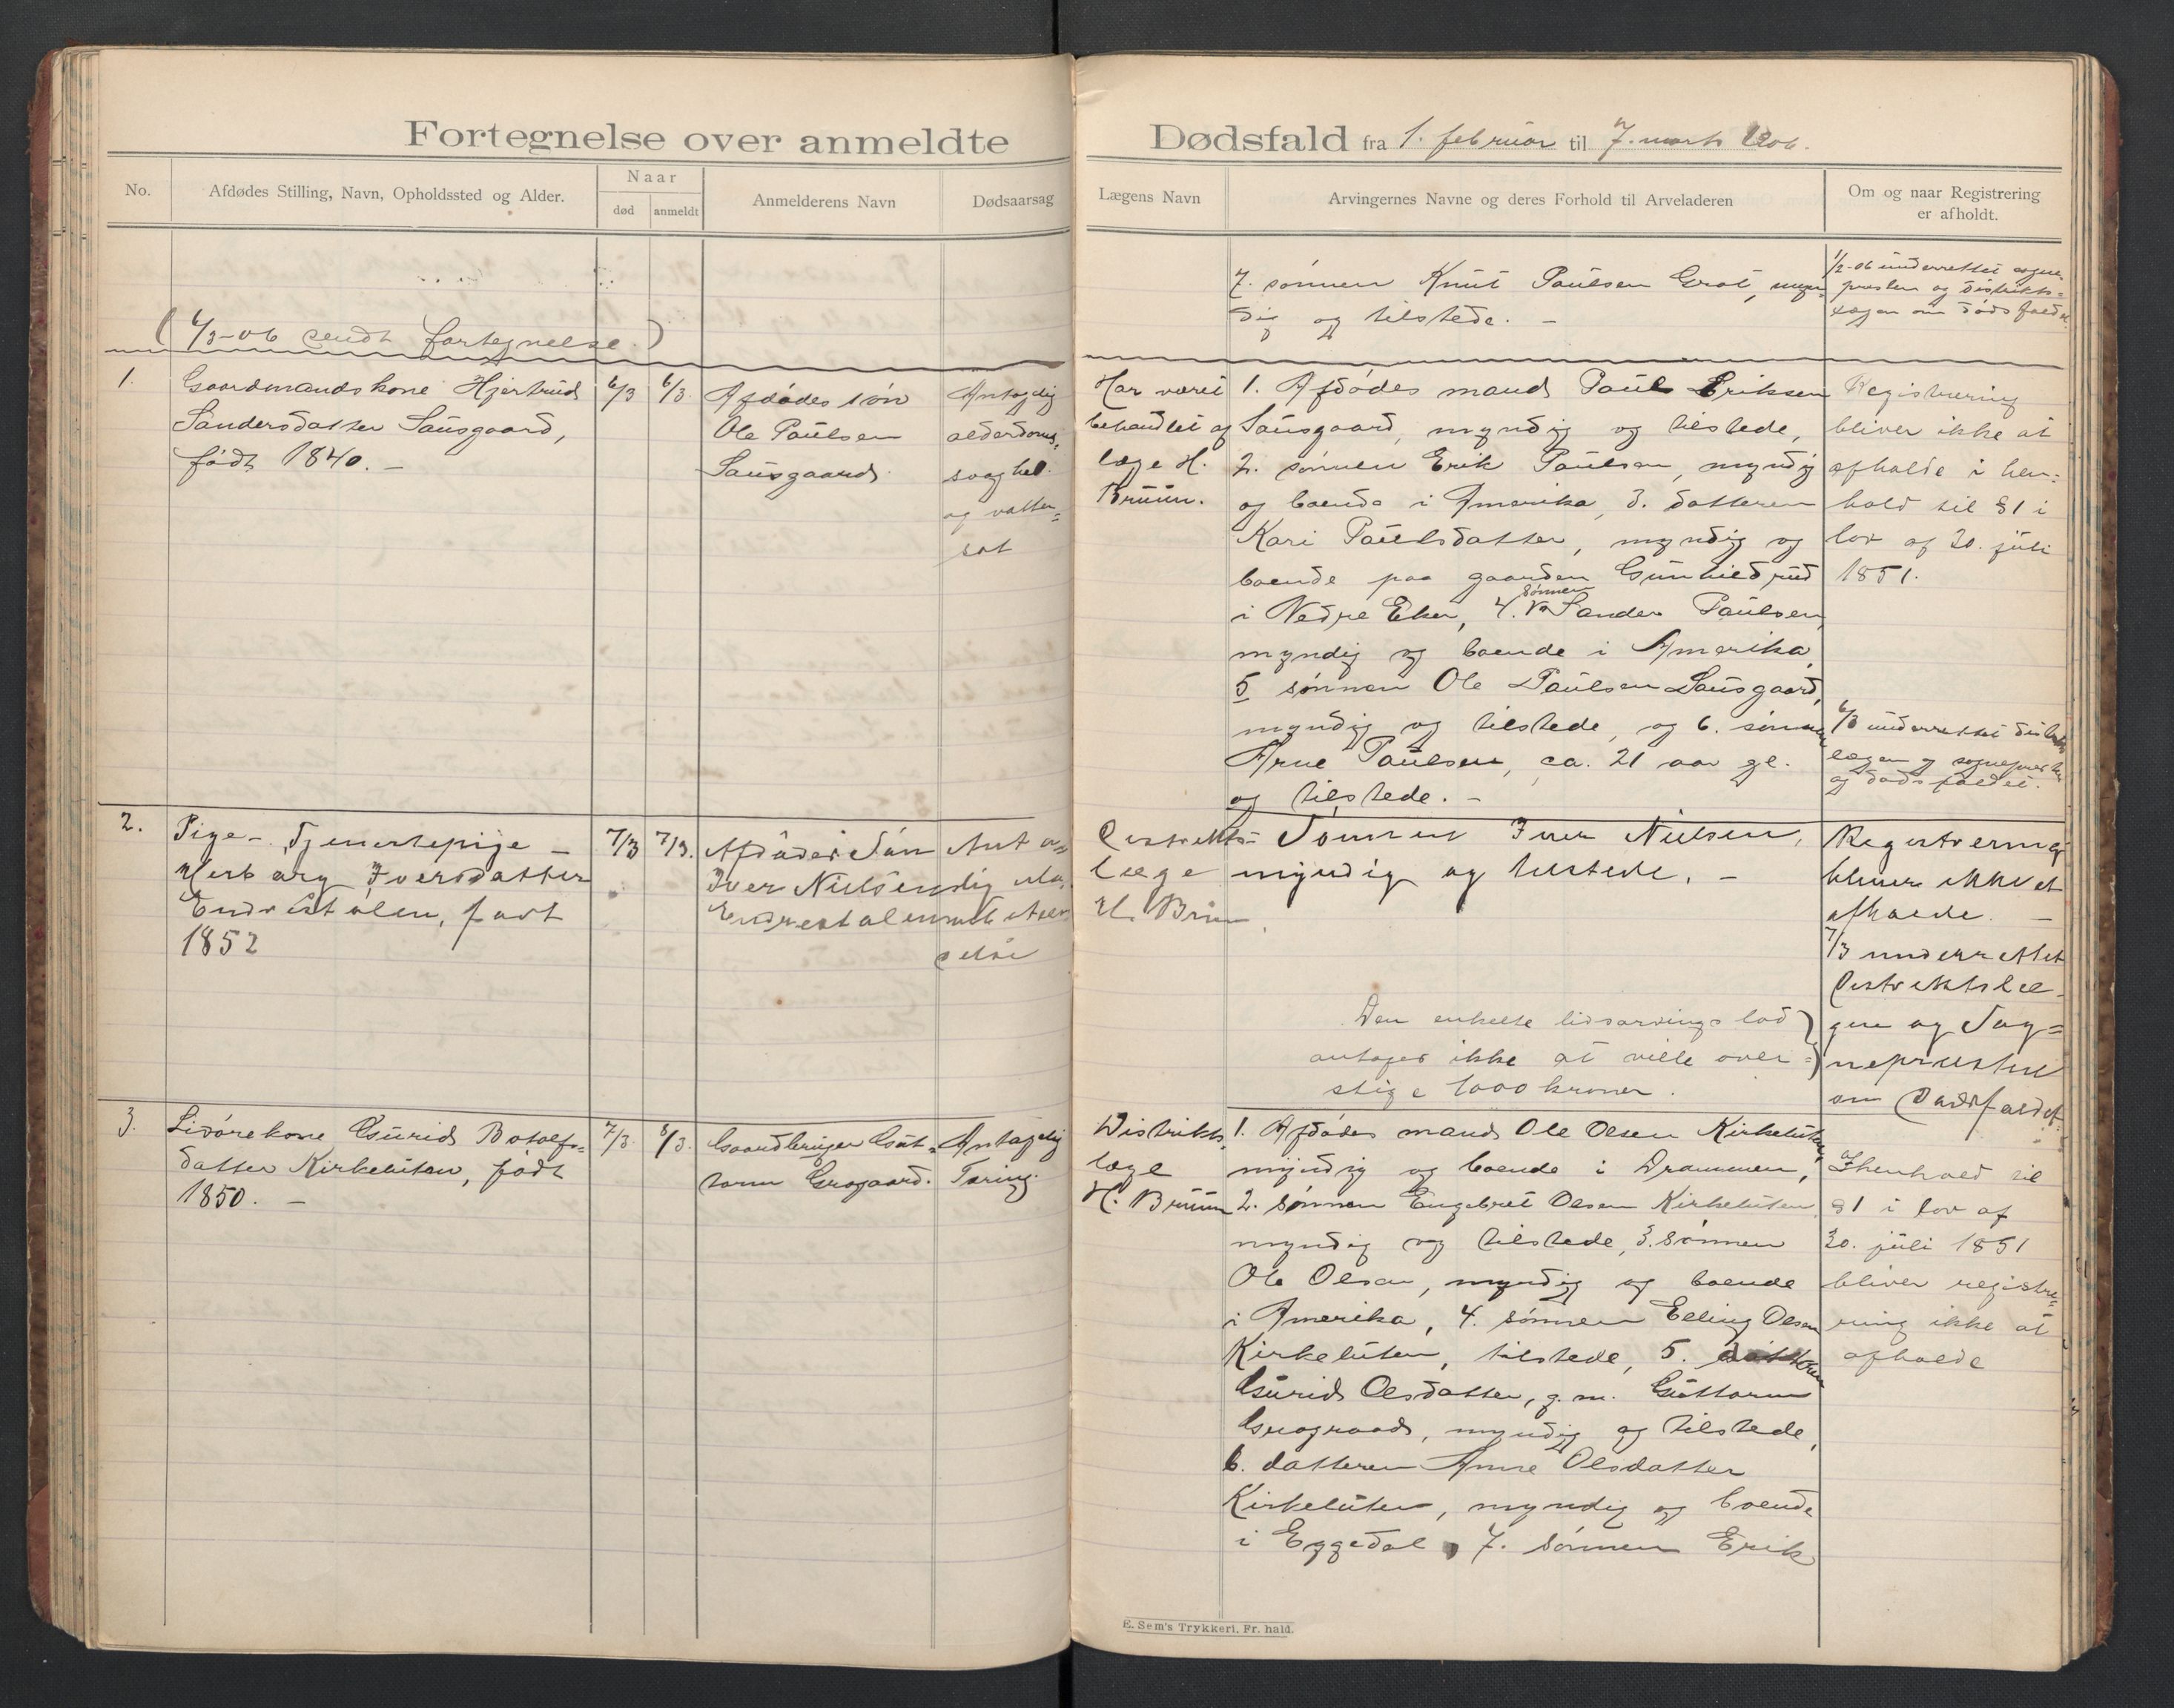 Fortegnelse over anmeldte
No.
Afdødes Stilling, Navn, Opholdssted og Alder.
Naar
død
anmeldt
Anmelderens Navn
Dødsaarsag
(6/3-06 sendt fortegnelse.)
1.
Gaardmandskone Hjertrud
Sandersdatter Sausgaard,
født 1840. -
6/3
6/3
Afdødes søn
Ole Paulsen
Sausgaard.
Antagelig
alderdoms-
svaghed
og vatter-
sot
2.
Pige - Tjenestepige -
Herbarg Iversdatter
Endrestølen, født
1852
7/3
7/3.
Afdødes Søn
Iver Nielsen
Endrestølen
Anta-
3.
Livørekone Gurid Botolfs-
datter Kirkeluten, født
1850. -
7/3.
8/3.
Gaardbruger Gut-
torm Grogaard.
Antagelig
Tæring.
Dødsfald fra 1. februar til 7. marts 1906.
Lægens Navn
Arvingernes Navne og deres Forhold til Arveladeren
Om og naar Registrering
er afholdt.
7. sønnen Knut Paulsen Grøt, myn-
dig og tilstede. -
1/2-06 underrettet sogne-
presten og distrikts-
lægen om dødsfaldet.
Har været
behandlet af
læge H.
Bruun.
1. Afdødes mand Paul Eriksen
Sausgaard, myndig og tilstede,
2. sønnen Erik Paulsen, myndig
og boende i Amerika, 3. datteren
Kari Paulsdatter, myndig og
boende paa gaarden Gunhildrud
i Nedre Eker, 4. sønnen Sander Paulsen,
myndig og boende i Amerika,
5 sønnen Ole Paulsen Sausgaard,
myndig og tilstede, og 6. sønnen
Arne Paulsen, ca. 21 aar gl.
og tilstede. -
Registrering
bliver ikke at
afholde i hen-
hold til §1 i
lov af 30. juli
1851.
6/3 underrettet distrikts
lægen og sognepresten
og dødsfaldet.
Distrikts-
læge
H. Bruun
Sønnen Iver Nielsen,
myndig og tilstede. -
Den enkelte livsarvings lod
antages ikke at ville over-
stige 1000 kroner.
Registrering
bliver ikke at
afholde. -
7/3 underrettet
Distriktslæ-
gen og Sog-
nepresten
om Dødsfaldet.
Distrikts-
læge
H. Bruun
1. Afdødes mand Ole Olsen Kirkeluten,
myndig og boende i Drammen,
2. sønnen Engebret Olsen Kirkeluten
myndig og tilstede, 3. sønnen
Ole Olsen, myndig og boende
i Amerika, 4. sønnen Elling Olsen
Kirkeluten, tilstede, 5. datteren
Gurid Olsdatter, g. m. Guttorm
Grogaard, myndig og tilstede,
6. datteren Anne Olsdatter
Kirkeluten, myndig og boende
i Eggedal, 7. sønnen Erik
I henhold til
§1 i lov af
30. juli 1851
bliver registre-
ring ikke at
afholde
E. Sem's Trykkeri, Fr. hald.